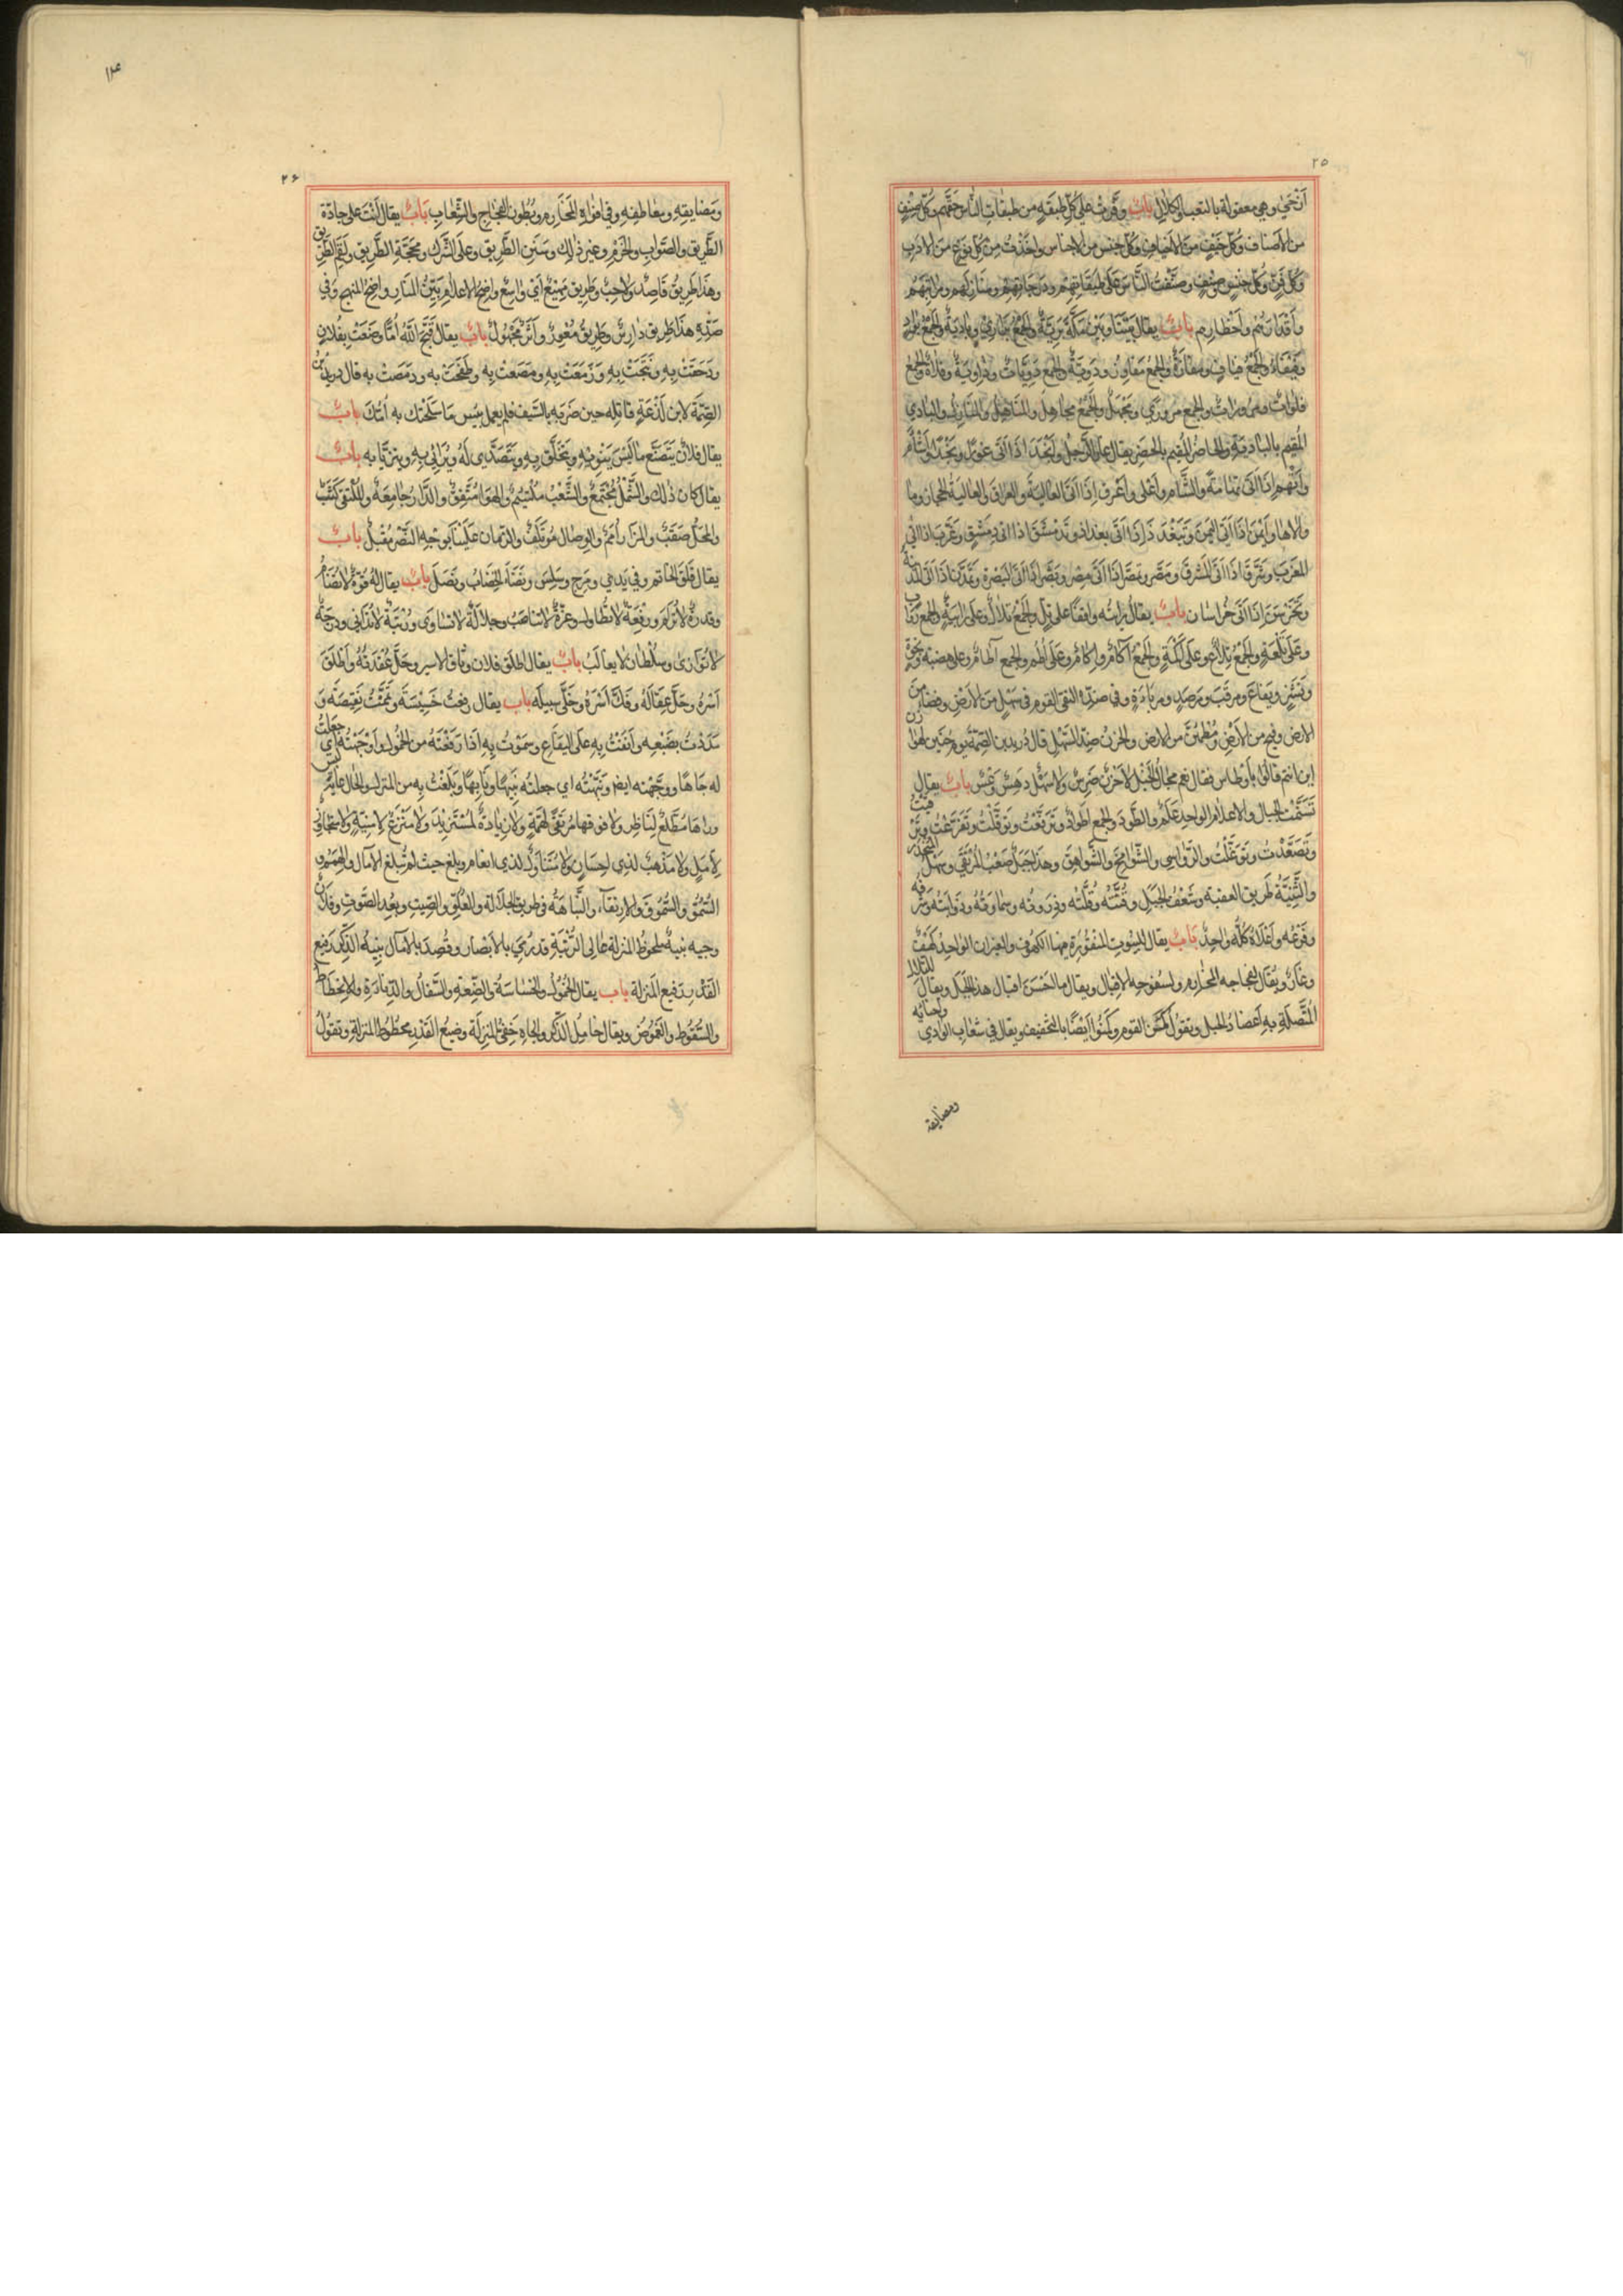 ٢٥
أَرْخَى وهي معقولة بالتعب والكلال باب وفرقت على كل طبقة من طبقات الناس حقهم وكل صنف
من الأصناف وكل خيف من الأخياف وكل جنس من الأجناس واخذت من كل نوع من الأدب
وكل فن وكل جنس وصنف وصنفت الناس على طبقاتهم ودرجاتهم ومنازلهم ومراتبهم
وأقدارهم وأخطارهم باب يقال بيننا وبين مكة برية والجمع براري وبادية والجمع بواد
وفيفاء والجمع فياف ومفازة والجمع مفاوز ودوية والجمع دويات وداوية وفلاة والجمع
فلوات ومرورات والجمع مروري ومجهل والجمع مجاهل والمناهل والمنازل والبادي
المقيم بالبادية والحاضر المقيم بالحضر يقال على الرجل وانجد اذا اتى نجدا وأشأم
وأتهم إذا اتى تهامة والشام وأعلى وأعرق إذا اتى العالية والعراق والعالية الحجاز وما
والاها وأيمن إذا اتى اليمن وتبغدد إذا اتى بغداد وتدمشق اذا اتى دمشق وغرب اذا اتى
المغرب وشرق اذا اتى المشرق ومصر وتمصر إذا اتى مصر وتبصر إذا اتى البصرة وتمدن إذا اتى المدينة
وتخرسن إذا اتى خراسان باب يقال رايته واقفا على تل والجمع تلال وعلى رابية والجمع رواب
وعلى تلعة والجمع تلاع وعلى اكمة والجمع آكام وإكام وعلى أطم والجمع آطام وعلى هضبة ونجوة
ونشز ويفاع ومرقب ومرصد ومرباءة وفي ضده التقى القوم في سهل من الأرض وفضاء من
الارض وفج من الأرض ومطمئن من الارض والحزن ضد السهل قال دريد بن الصمة يوم حنين لهوازن
اين انتم قالوا باوطاس فقال نعم مجال الخيل لا حزن ضرس ولا سهل دهس وعس باب يقال
تسنمت الجبال والاعلام الواحد علم والطود والجمع اطواد وتربعت وتوقلت وتفرعت وترقيت
وتصعدت وتوغلت والرواسي والشوامخ والشواهق وهذا جبل صعب المرتقى وسهل المنحدر
والثنية طريق العقبة وشعف الجبل وقنته وقلته وذروته وسماوته وذوابته وشرفه
وفرعه وأعلاه كله واحد باب يقال للبيوت المنقورة منها الكهوف والغيران الواحد كهف
وغار ويقال لفجاجه المخارم ولسفوحه الاقبال ويقال ما احسن اقبال هذا الجبل ويقال للتلال
المتصلة به أعضاد الجبل وتقول كمن القوم وكمنوا ايضا بالتخفيف ويقال في شعاب الوادي وأحنائه
ومضايقه
١٤
٢٦
ومضايقه ومعاطفه وفي افواه المخارم وبطون الفجاج والشعاب باب يقال أنت على جادة
الطريق والصواب والحزم وغير ذلك وسنن الطريق وعلى الشرك ومحجة الطريق ولقم الطريق
وهذا طريق قاصد ولاحب وطريق مهيع اي واسع واضح الاعلام بين المنار واضح المنهج وفي
ضده هذا طريق دارس وطريق معور واثر مجهول باب يقال قبح الله أما وضعت بفلان
ودحقت به ونتجت به وزمعت به ومصعت به وطفحت به ودمصت به قال دريد بن
الصمة لابن لذعة قاتله حين ضربه بالسيف فلم يعمل بيس ما سلحتك به امك باب
يقال فلان يتصنع ما ليس ينويه ويتخلق به ويتصدى له ويرائي به ويتزيا به باب
يقال كان ذلك والشمل مجتمع والشعب ملتئم والهوا متفق والدار جامعة والملتقى كثب
والمحل صقب والمزار أمم والوصال مؤتلف والزمان علينا بوجه النصر مقبل باب
يقال قلق الخاتم وفي يدي ومرج وسلس ونضا الخضاب ونصل باب يقال له قوة لا تضام
وقدرة لا ترام ورفعة لا تطاول وعزة لا تناصب وجلالة لا تساوى ورتبة لا تدانى ودرجة
لا توازى وسلطان لا يغالب باب يقال اطلق فلان وثاق الاسير وحل عقدته وأطلق
اسره وحل عقاله وفك اسره وخلى سبيله باب يقال رفعت خسيسته وتممت نقيصته و
سددت بضبعه وأنفت به على اليفاع وسموت به إذا رفعته من الخمول واوجهته اي جعلت
له جاها ووجهته ايضا ونبهته اي جعلته نبيها ونابها وبلغت به من المنزل والحال ما ليس
وراها مطلع لناظر ولا فوقها مرتقى لهمة ولا زيادة لمستزيد ولا منزع لامنية ولا متجاوز
لامل ولا مذهب لذي احسان ولا متناول لذي انعام وبلغ حيث لم تبلغ الآمال والهمم و
السمو والسموق والارتقاء والنباهة في طريق الجلالة والعلو والصيت وبعد الصوت وفلان
وجيه نبيه ملحوظ المنزلة عالى الرتبة قد رمي بالابصار وقصد بالآمال نبيه الذكر رفيع
القدر رفيع المنزلة باب يقال الخمول والخساسة والضعة والسفال والدناءة والانحطاط
والسقوط والغموض ويقال خامل الذكر والجاه خفي المنزلة وضيع القدر محطوط المنزلة وتقول